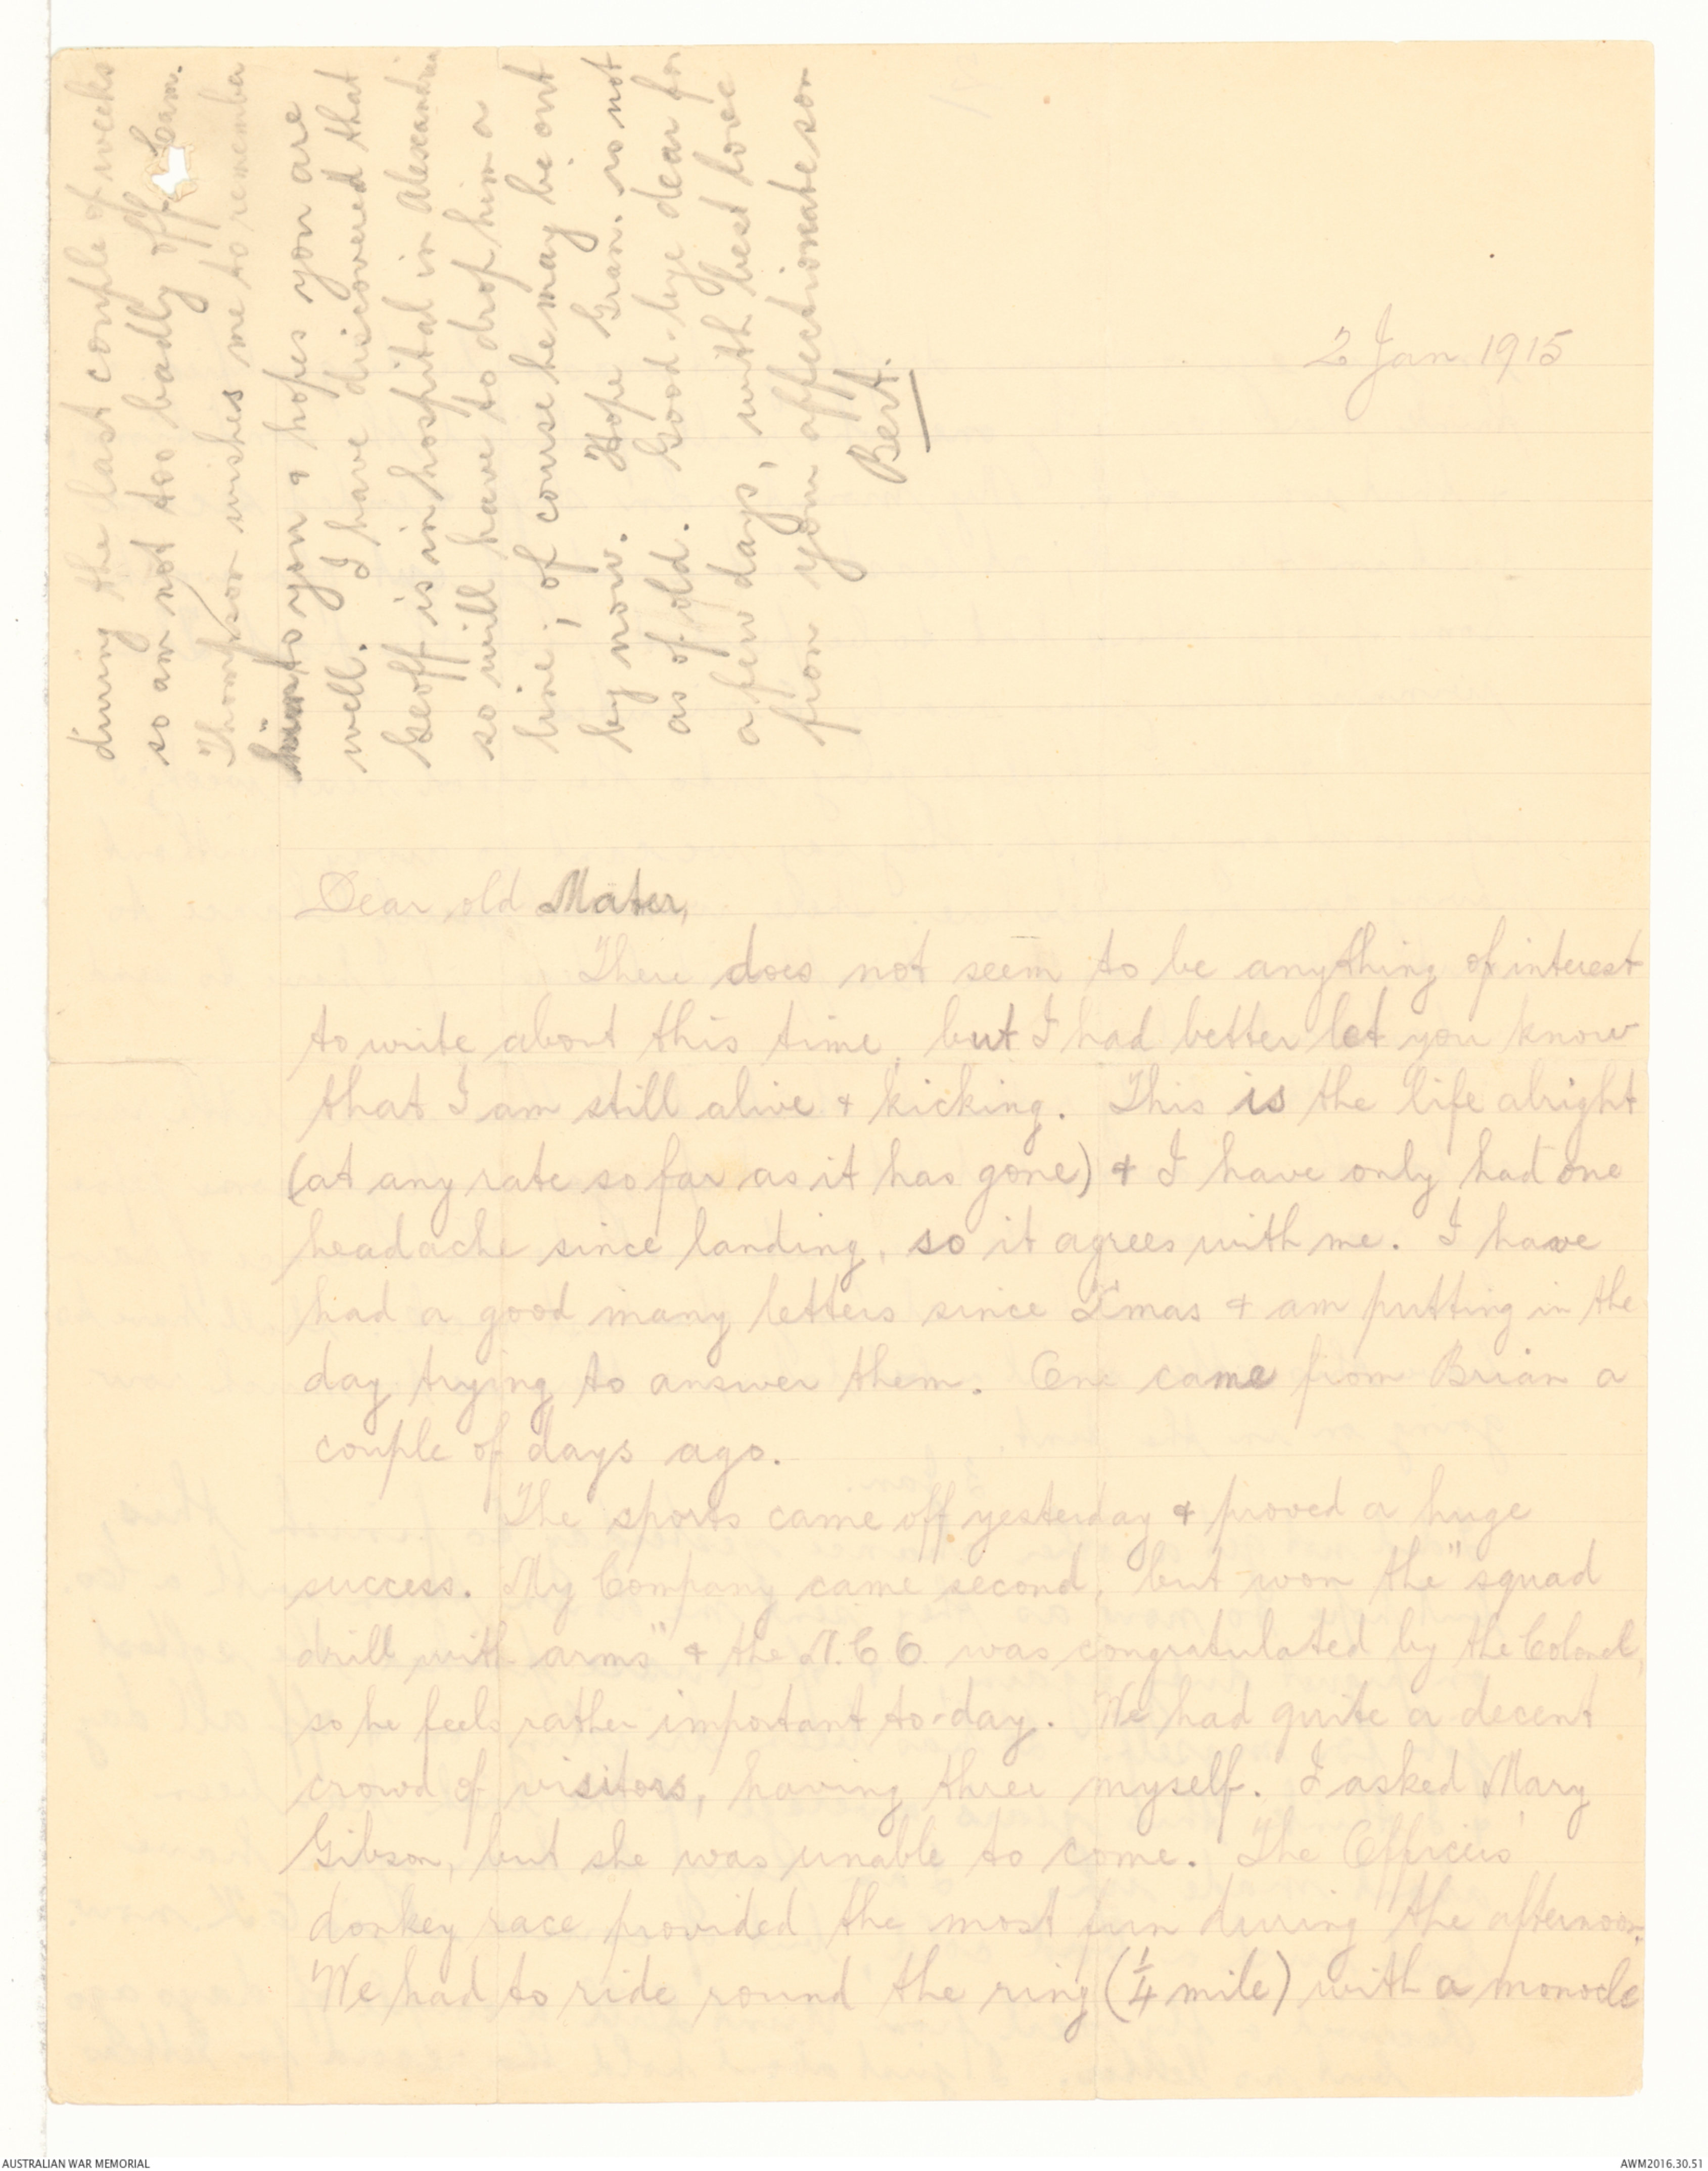 during the last couple of weeks
so am not too badly off. Cam.
Thompson wishes me to remember
him to you & hopes you are
well. I have discovered that
Geoff is in hospital in Alexandria
so will have to drop him a
line; of course he may be out
by now. Hope Gran. is not
as of old. Good-bye dear for
a few days, with best love
from your affectionate son
Bert.
2 Jan 1915
Dear old Mater,
There does not seem to be anything of interest
to write about this time, but I had better let you know
that I am still alive & kicking. This is the life alright
(at any rate so far as it has gone) & I have only had one
headache since landing, so it agrees with me. I have
had a good many letters since Xmas & am putting in the
day trying to answer them. One came from Brian a
couple of days ago.
The sports came off yesterday & proved a huge
success. My Company came second, but won the "squad
drill with arms" & the N.C.O. was congratulated by the Colonel,
so he feels rather important to-day. We had quite a decent
crowd of visitors, having three myself. I asked Mary
Gibson, but she was unable to come. The Officers'
donkey race provided the most fun during the afternoon.
We had to ride round the ring (1/4 mile) with a monocle
AUSTRALIAN WAR MEMORIAL
AWM2016.30.51